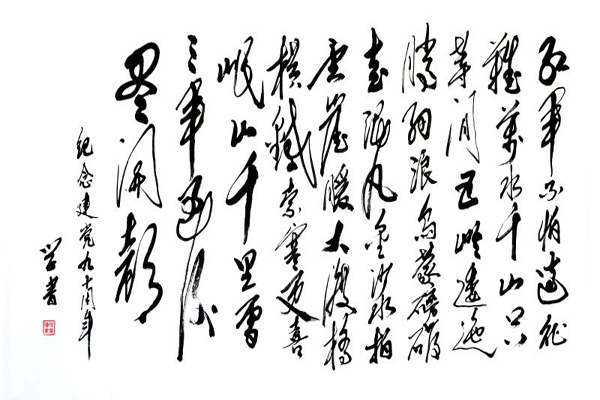 红軍不怕遠征
難萬水千山只
等闲五岭逶迤
腾细浪乌蒙磅礴
走泥丸金沙水拍
雲崖暖大渡橋
横鐵索寒更喜
岷山千里雪
三軍過后
尽開顏
纪念建党九十周年
学書